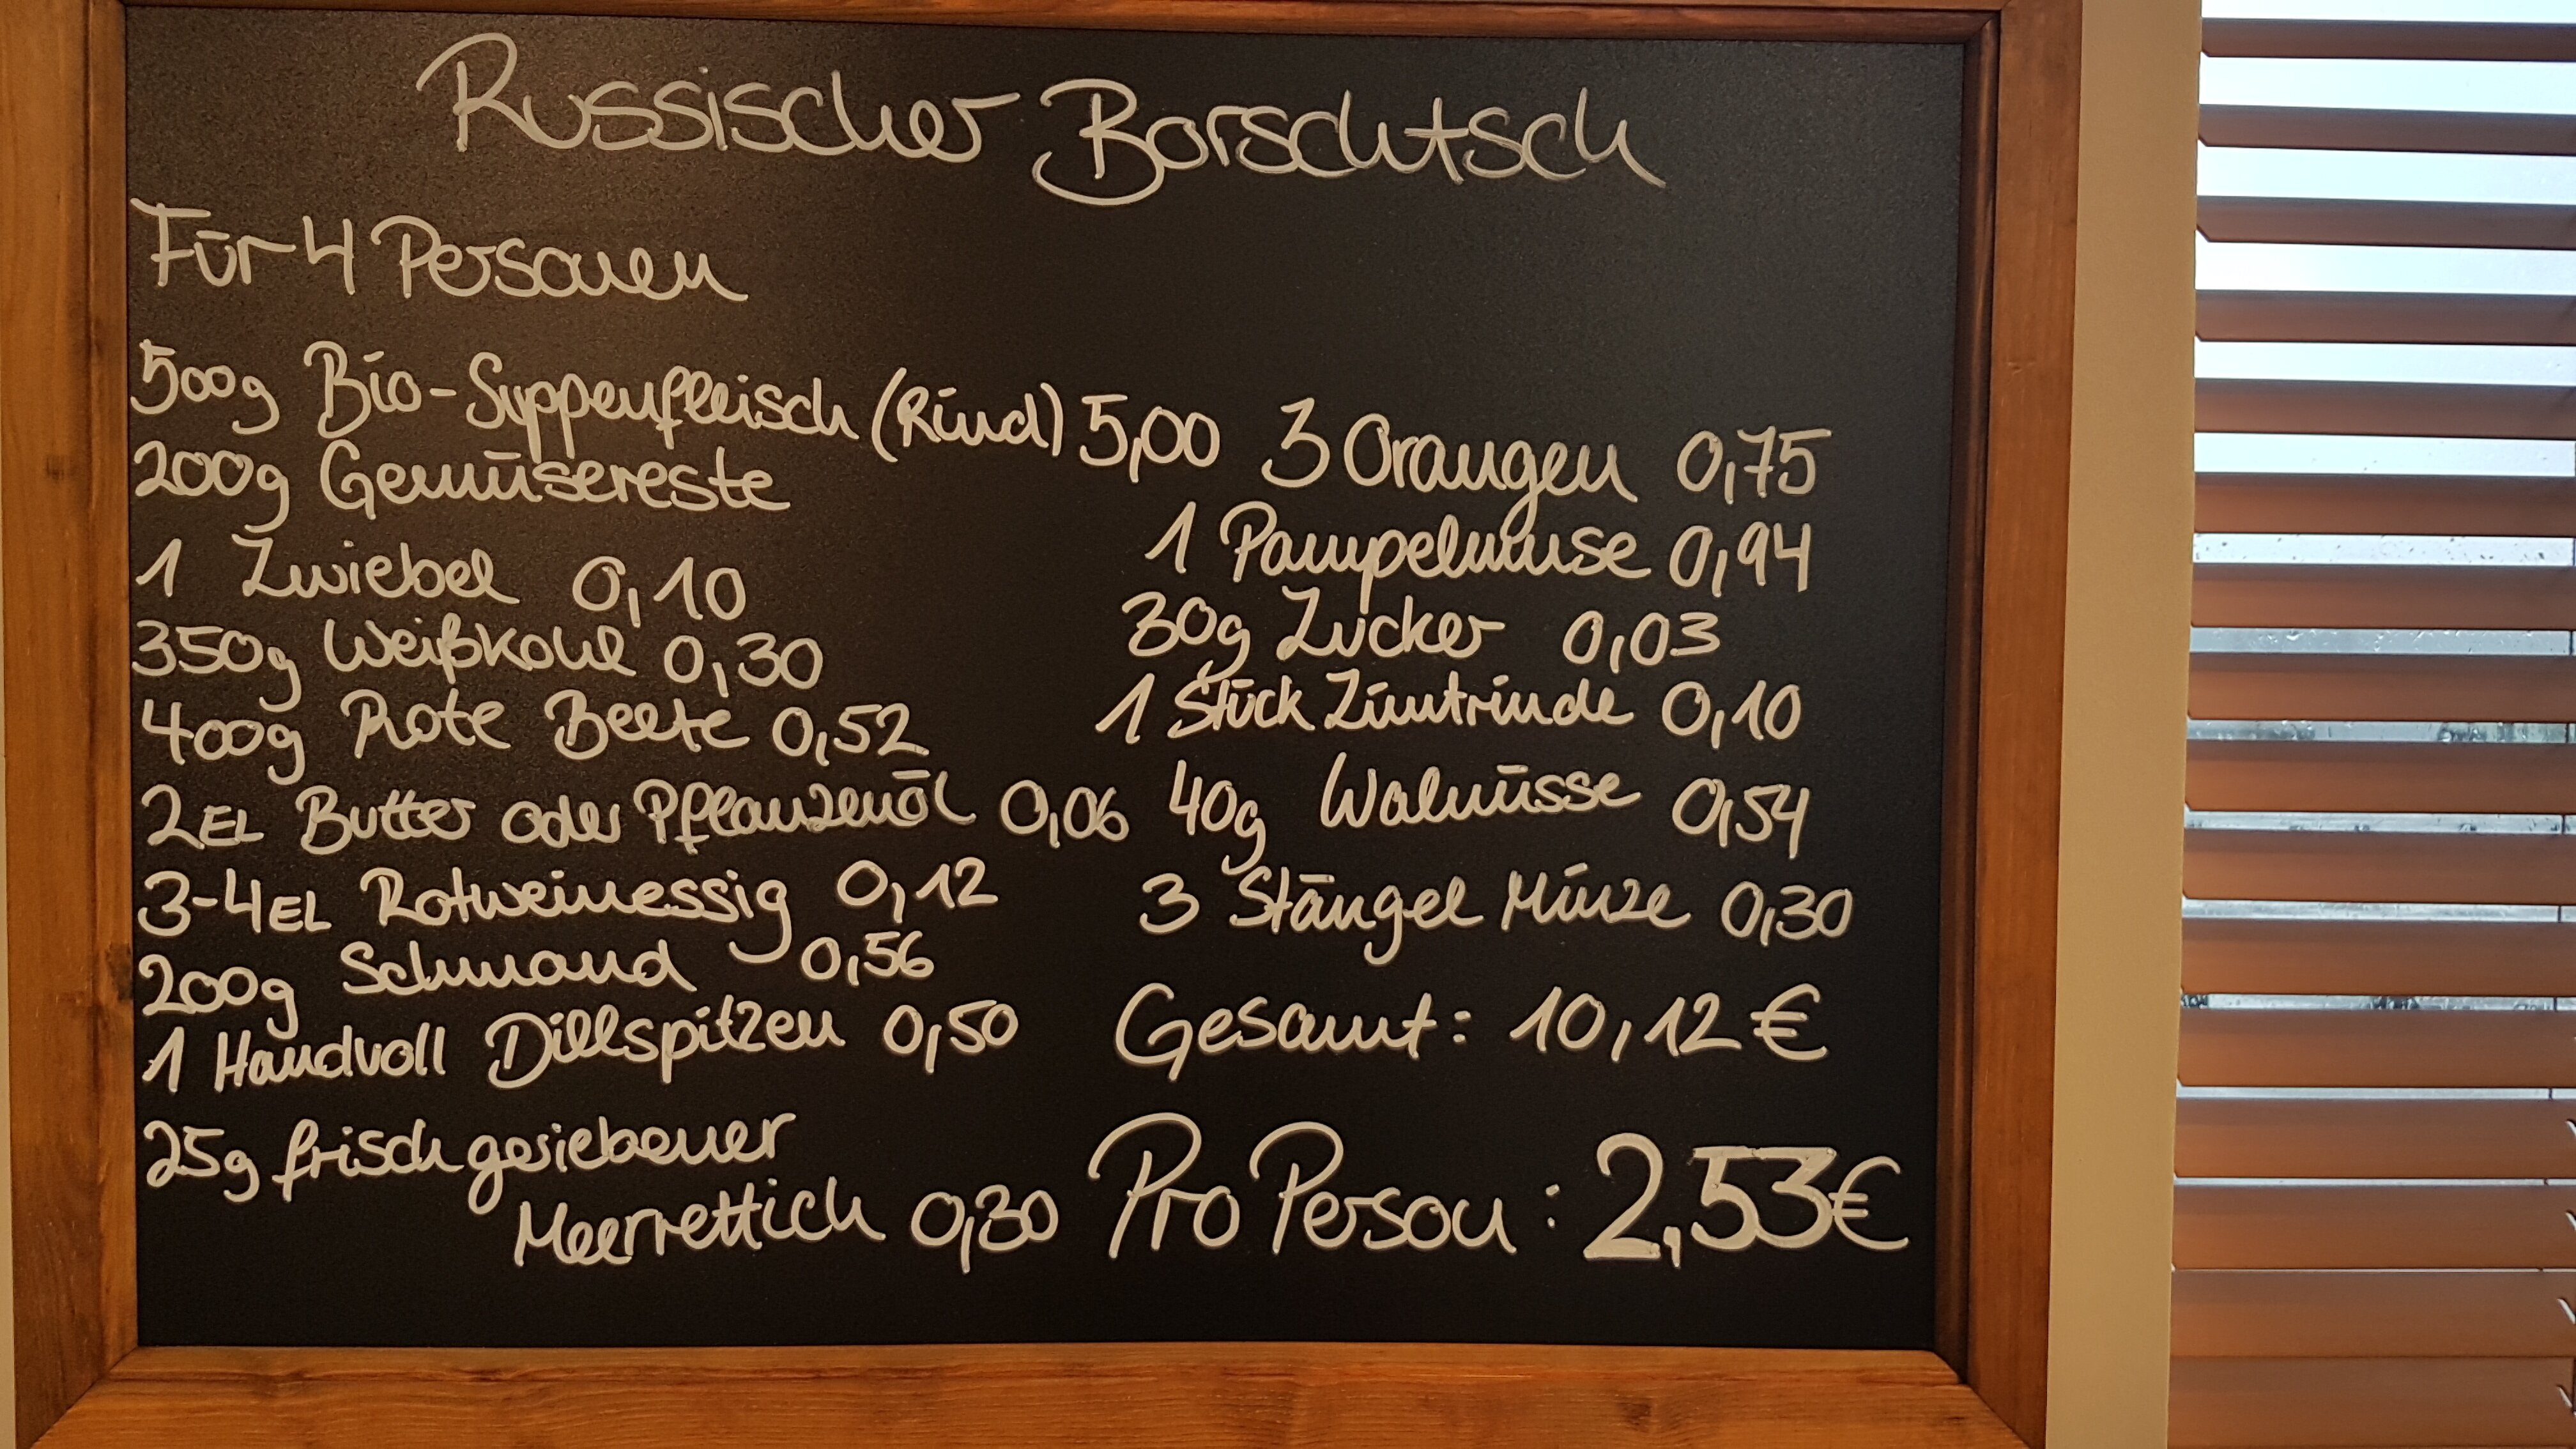 Russischer Borschtsch
Für 4 Personen
500g Bio-Suppenfleisch (Rind) 5,00
200g Gemüsereste
1 Zwiebel 0,10
350g Weißkohl 0,30
400g Rote Beete 0,52
2EL Butter oder Pflanzenöl 0,06
3-4EL Rotweinessig 0,12
200g Schmand 0,56
1 Handvoll Dillspitzen 0,50
25g frisch geriebener
Meerrettich 0,30
3 Orangen 0,75
1 Pampelmuse 0,94
30g Zucker 0,03
1 Stück Zimtrinde 0,10
40g Walnüsse 0,54
3 Stängel Minze 0,30
Gesamt: 10,12€
Pro Person: 2,53€